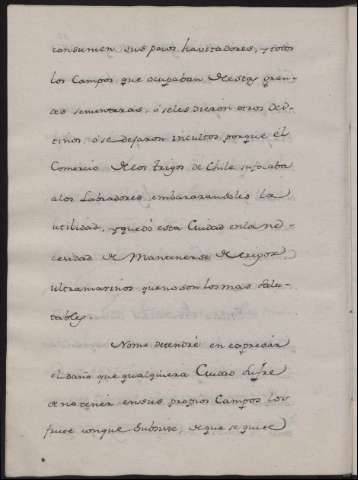 consumen sus pocos havitadores, y todos
los Campos que ocupaban de estas gran-
des sementeras, ó seles dieron otros des-
tinos ó se dejaron incultos, porque el
Comercio de los trigos de Chile sufocaba
alos Labradores embarazandoles la
utilidad, y quedó esta Ciudad en la ne-
cesidad de Mantenerse de trigos
ultramarinos que no son los mas salu-
dables.
No me detendré en expresar
el daño que qualquiera Ciudad sufre
de no tener en sus propios Campos los
con que subsistir, de que se